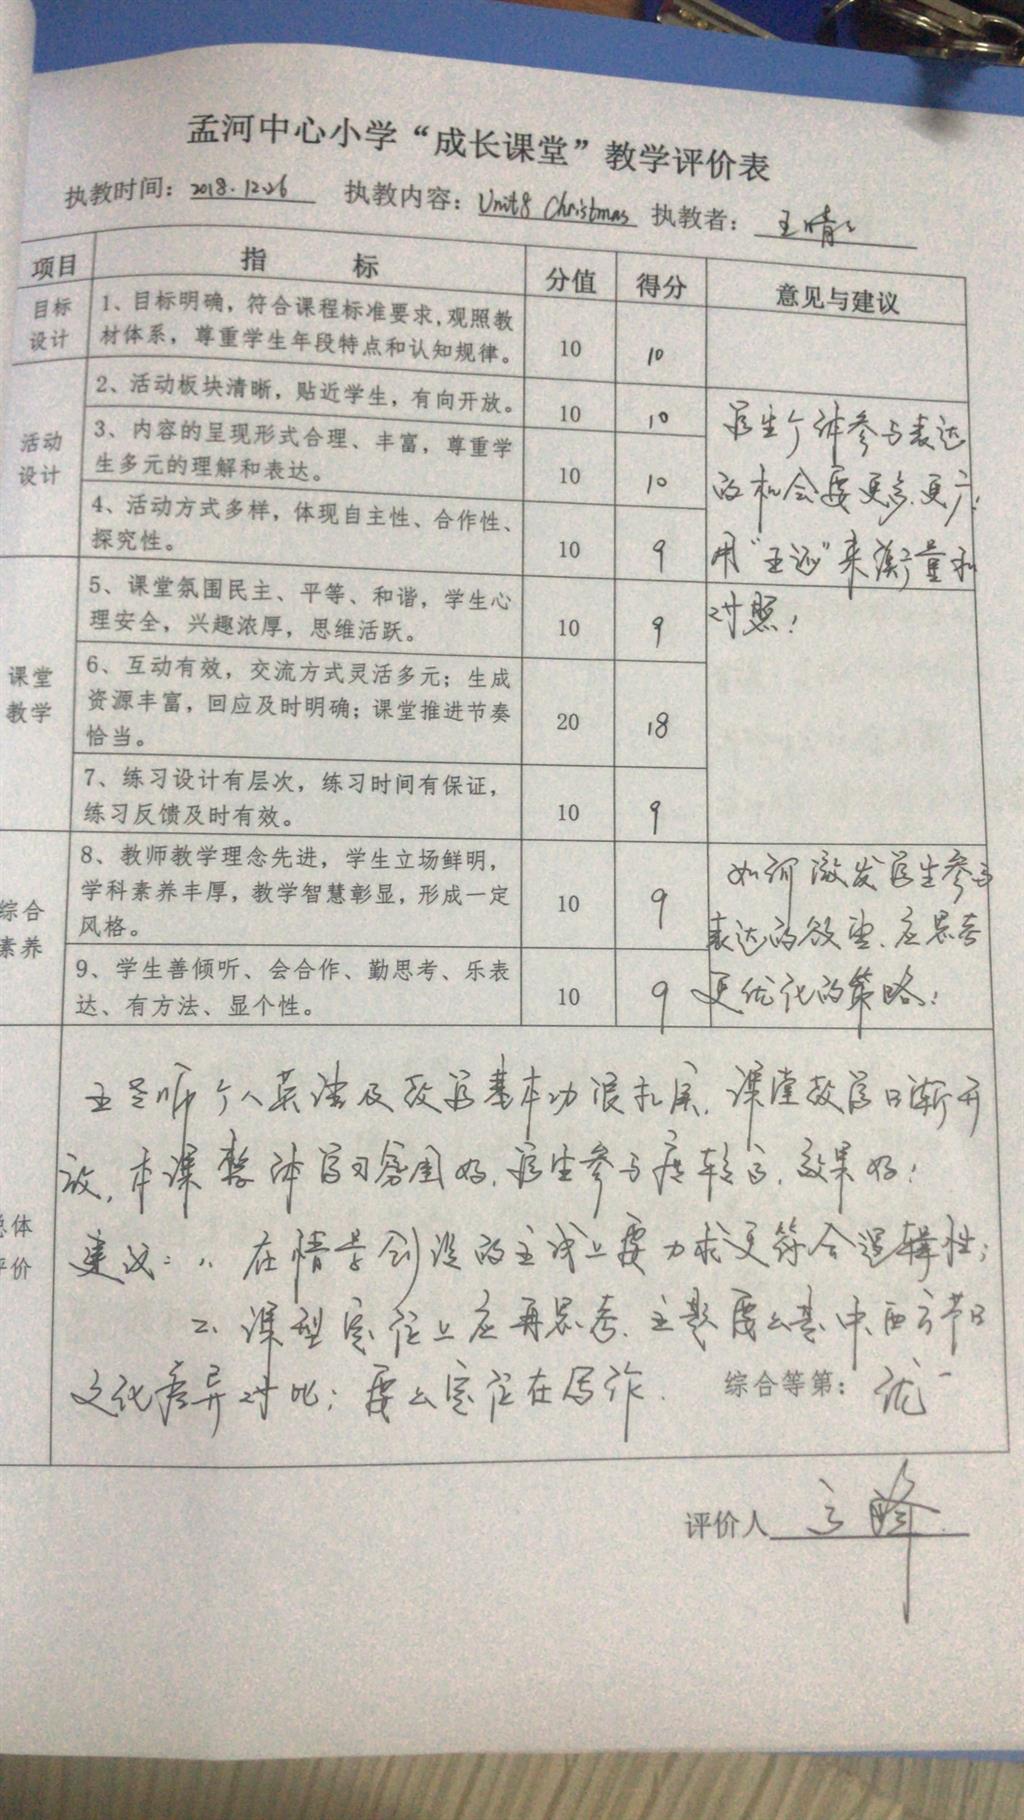 孟河中心小学“成长课堂”教学评价表
执教时间：2018.12.26 执教内容：Unit8 Christmas 执教者：王
项目 指 标 分值 得分 意见与建议
目标
设计
1、目标明确，符合课程标准要求，观照教
材体系，尊重学生年段特点和认知规律。 10 10
活动
设计
2、活动板块清晰，贴近学生，有向开放。 10 10
3、内容的呈现形式合理、丰富，尊重学
生多元的理解和表达。 10 10
4、活动方式多样，体现自主性、合作性、
探究性。 10 9
学生个体参与表达
的机会要更多、更广，
用“五还”来衡量和
对照！
课堂
教学
5、课堂氛围民主、平等、和谐，学生心
理安全，兴趣浓厚，思维活跃。 10 9
6、互动有效，交流方式灵活多元；生成
资源丰富，回应及时明确；课堂推进节奏
恰当。 20 18
7、练习设计有层次，练习时间有保证，
练习反馈及时有效。 10 9
综合
素养
8、教师教学理念先进，学生立场鲜明，
学科素养丰厚，教学智慧彰显，形成一定
风格。 10 9
9、学生善倾听、会合作、勤思考、乐表
达、有方法、显个性。 10 9
如何激发学生参与
表达的欲望、应思考
更优化的策略！
总体
评价
王老师个人英语及教学基本功很扎实，课堂教学日渐开
放，本课整体学习氛围好，学生参与度较高，效果好！
建议：1、在情景创设的主线上要力求更符合逻辑性；
2、课型定位上应再思考、主题要么是中西方节日
文化差异对比；要么定位在写作. 综合等第： 优
评价人